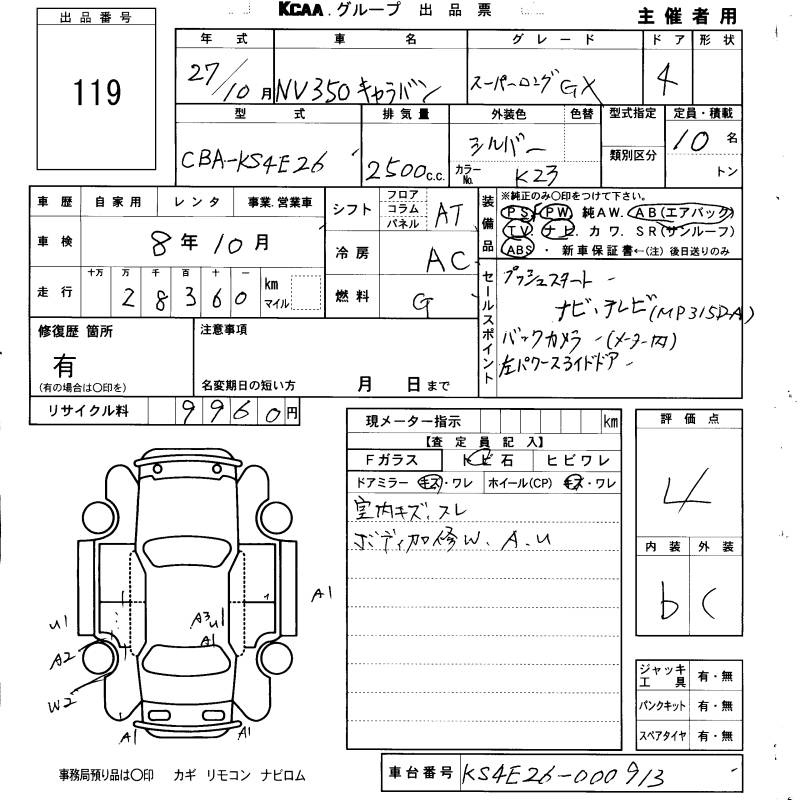 KCAA.グループ 出品票
主催者用
出品番号
119
年式 車名 グレード ドア 形状
27/10月 NV350キャラバン スーパーロングGX 4
型式 排気量 外装色 色替 型式指定 定員・積載
CBA-KS4E26 2500c.c. シルバー 10名
カラーNo. K23 類別区分 トン
車歴 自家用 レンタ 事業.営業車
車検 8年10月
走行 十万 万 千 百 十 一 km マイル
28360
シフト フロア コラム パネル AT
冷房 AC
燃料 G
装備品 ※純正のみ○印をつけて下さい。
PS. PW. 純AW. AB(エアバック)
TV. ナビ. カワ. SR(サンルーフ)
ABS・ 新車保証書←(注)後日送りのみ
セールスポイント
プッシュスタート
ナビ、テレビ(MP315DA)
バックカメラ (メーター内)
左パワースライドドア
修復歴 箇所
有
(有の場合は○印を)
注意事項
名変期日の短い方 月 日まで
リサイクル料 9960円
現メーター指示 km
【査定員記入】
Fガラス トビ石 ヒビワレ
ドアミラー キズ・ワレ ホイール(CP) キズ・ワレ
室内キズ、スレ
ボディ加修W、A、U
評価点
4
内装 外装
b C
ジャッキ工具 有・無
パンクキット 有・無
スペアタイヤ 有・無
A1
U1
A3
U1
A1
A2
W2
A1
A1
事務局預り品は○印 カギ リモコン ナビロム
車台番号 KS4E26-000913